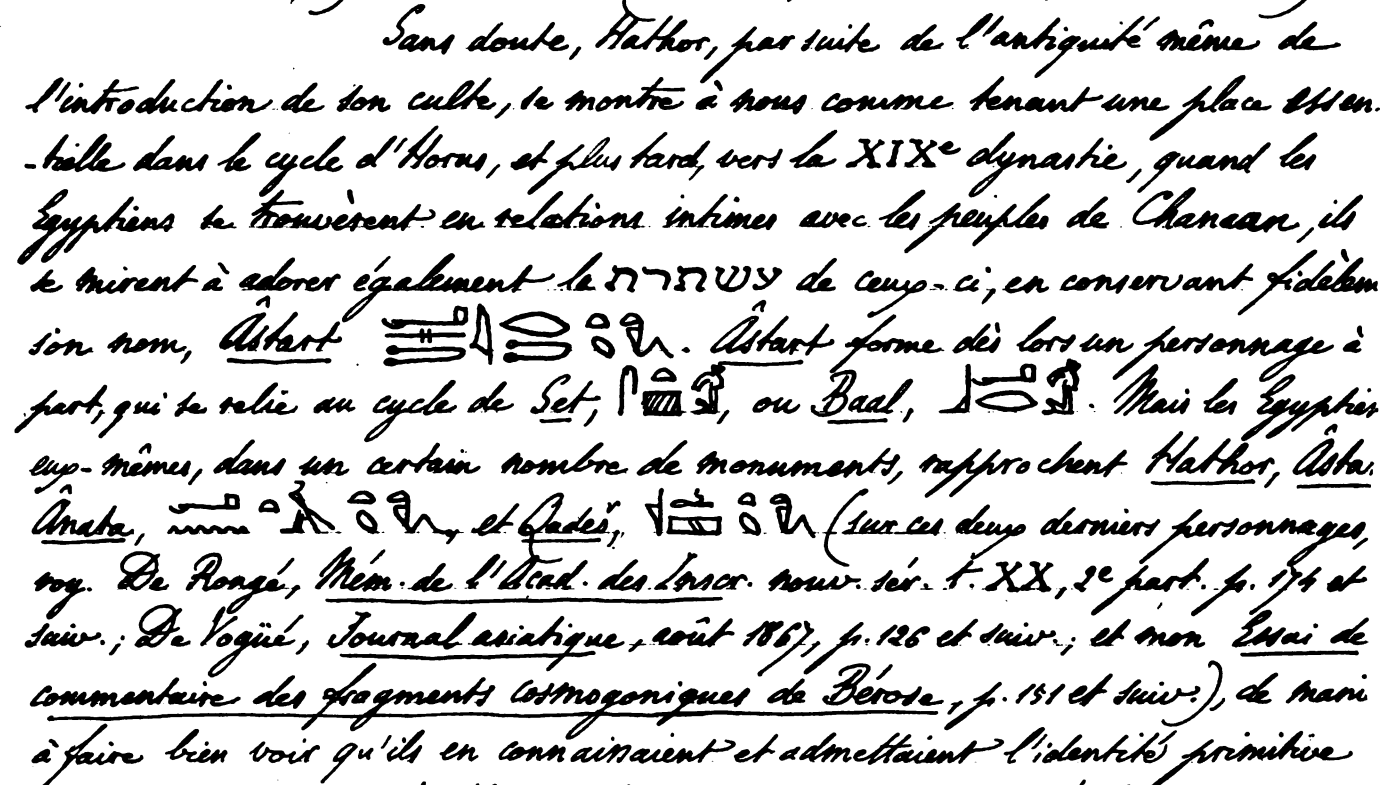 Sans doute, Hathor, par suite de l'antiquité même de
l'introduction de son culte, se montre à nous comme tenant une place essen-
-tielle dans le cycle d'Horus, et plus tard, vers la XIXe dynastie, quand les
Egyptiens se trouvèrent en relations intimes avec les peuples de Chanaan, ils
se mirent à adorer également la עשתרת de ceux-ci, en conservant fidèlem
son nom, Âstart . Âstart forme dès lors un personnage à
part, qui se relie au cycle de Set, , ou Baal, . Mais les Egyptien
eux-mêmes, dans un certain nombre de monuments, rapprochent Hathor, Âsta.
Ânata, , et Qadeš, (sur ces deux derniers personnages,
voy. De Rougé, Mém. de l'Acad. des Inscr. nouv. sér. t. XX, 2e part. p. 174 et
suiv.; De Vogüé, Journal asiatique, août 1867, p. 126 et suiv.; et mon Essai de
commentaire des fragments cosmogoniques de Bérose, p. 151 et suiv.), de mani
à faire bien voir qu'ils en connaissaient et admettaient l'identité primitive